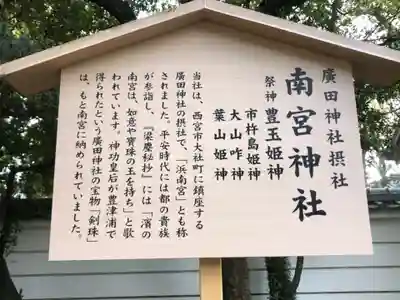 廣田神社摂社
南宮神社
祭神 豊玉姫神
市杵島姫神
大山咋神
葉山姫神
当社は、西宮市大社町に鎮座する
廣田神社の摂社で、「浜南宮」とも称
されました。平安時代には都の貴族
が参詣し、『梁塵秘抄』には「濱の
南宮は、如意や寳珠の玉を持ち」と歌
われています。神功皇后が豊津浦で
得られたという廣田神社の宝物「剣珠」
は、もと南宮に納められていました。